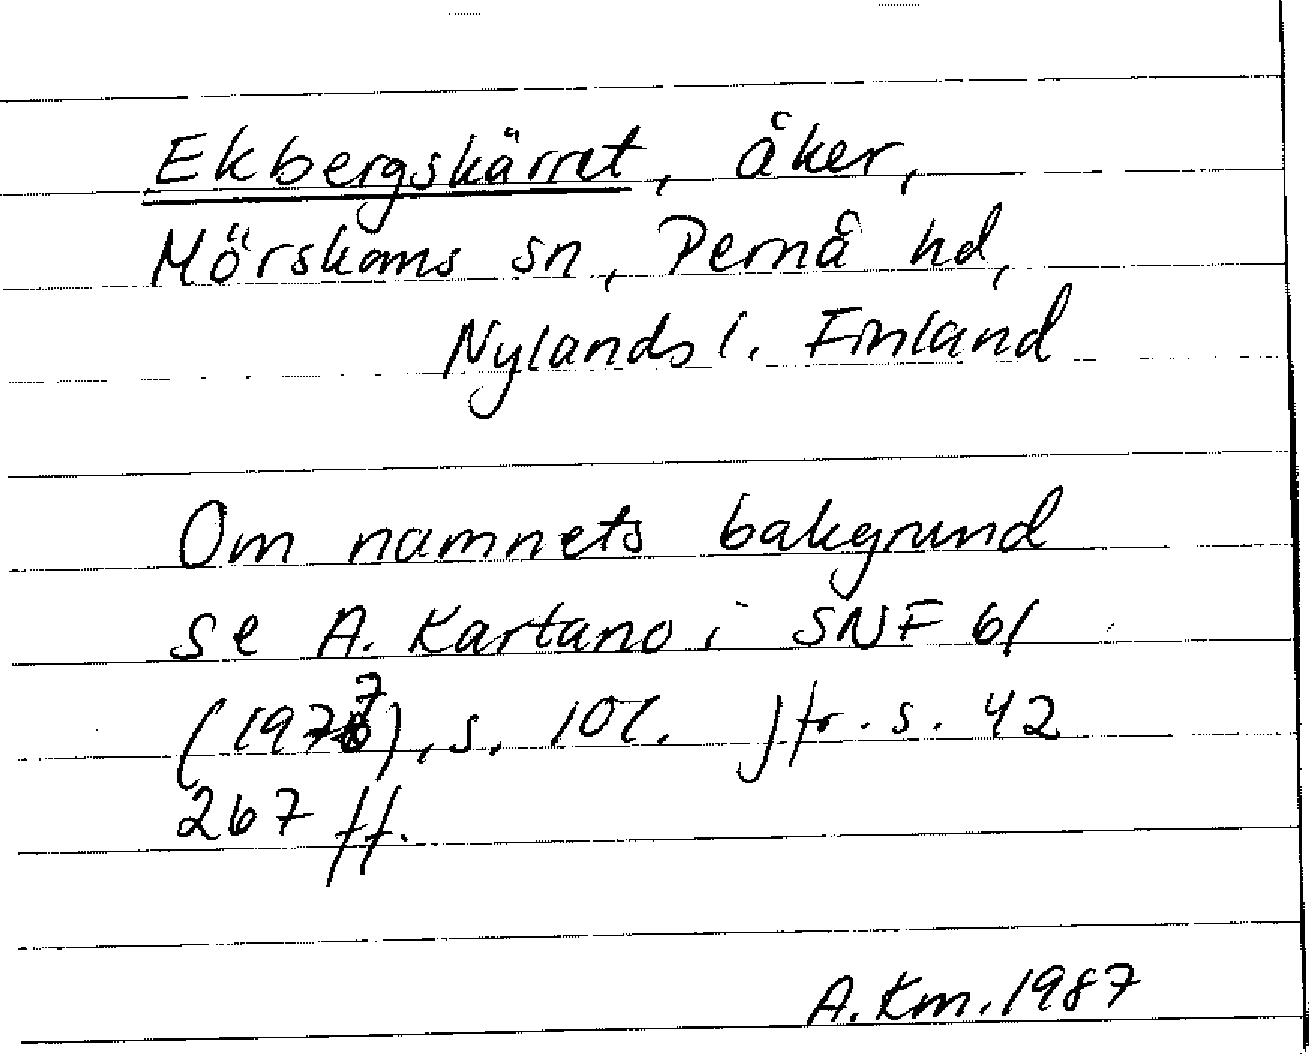 Ekbergskärret, åker,
Mörskoms sn, Pernå hd,
Nylands l. Finland
Om namnets bakgrund
se A. Kartano i SNF 61
(1977), s. 101. Jfr. s. 42
267 ff.
A. Km. 1987